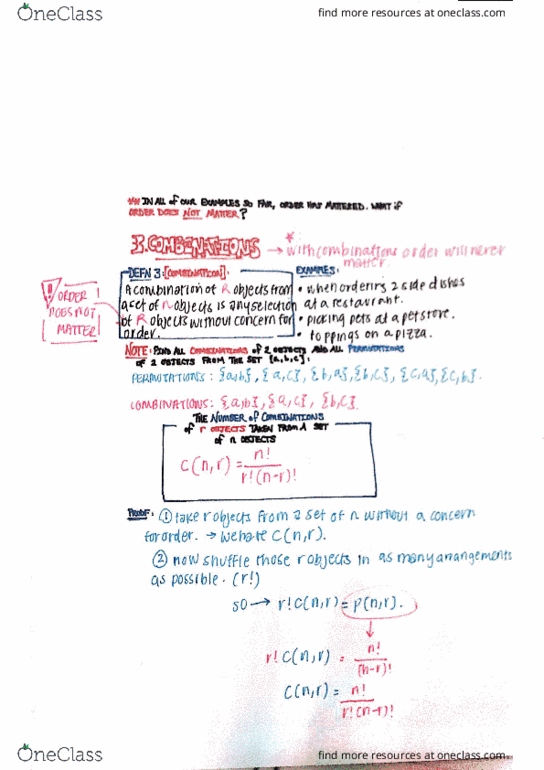 OneClass
find more resources at oneclass.com
*** IN ALL of OUR EXAMPLES SO FAR, ORDER HAS MATTERED. WHAT if
ORDER DOES NOT MATTER?
3. COMBINATIONS → * with combinations order will never
matter.
DEFN 3: [COMBINATION]:
EXAMPLES:
! ORDER
DOES NOT
MATTER
A combination of R objects from
a set of n objects is any selection
of R objects without concern for
order.
• when ordering 2 side dishes
at a restaurant.
• picking pets at a pet store.
• toppings on a pizza.
NOTE: FIND ALL COMBINATIONS of 2 OBJECTS AND ALL PERMUTATIONS
of 2 OBJECTS FROM THE SET {a,b,c}.
PERMUTATIONS: {a,b}, {a,c}, {b,a}, {b,c}, {c,a}, {c,b}.
COMBINATIONS: {a,b}, {a,c}, {b,c}.
THE NUMBER of COMBINATIONS
of r OBJECTS TAKEN FROM A SET
of n OBJECTS
C(n,r) = n!
r!(n-r)!
PROOF: ① take r objects from a set of n without a concern
for order. → we have C(n,r).
② now shuffle those r objects in as many arrangements
as possible. (r!)
so → r!C(n,r) = P(n,r).
r! C(n,r) = n!
(n-r)!
C(n,r) = n!
r!(n-r)!
OneClass
find more resources at oneclass.com